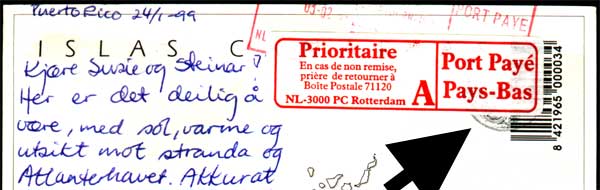 Puerto Rico 24/1-99
ISLAS C
Kjære Susie og Steinar!
Her er det deilig å
være, med sol, varme og
utsikt mot stranda og
Atlanterhavet. Akkurat
PORT PAYE
NL
Prioritaire
En cas de non remise,
prière de retourner à
Boîte Postale 71120
NL-3000 PC Rotterdam
A
Port Payé
Pays-Bas
8 421965 000034